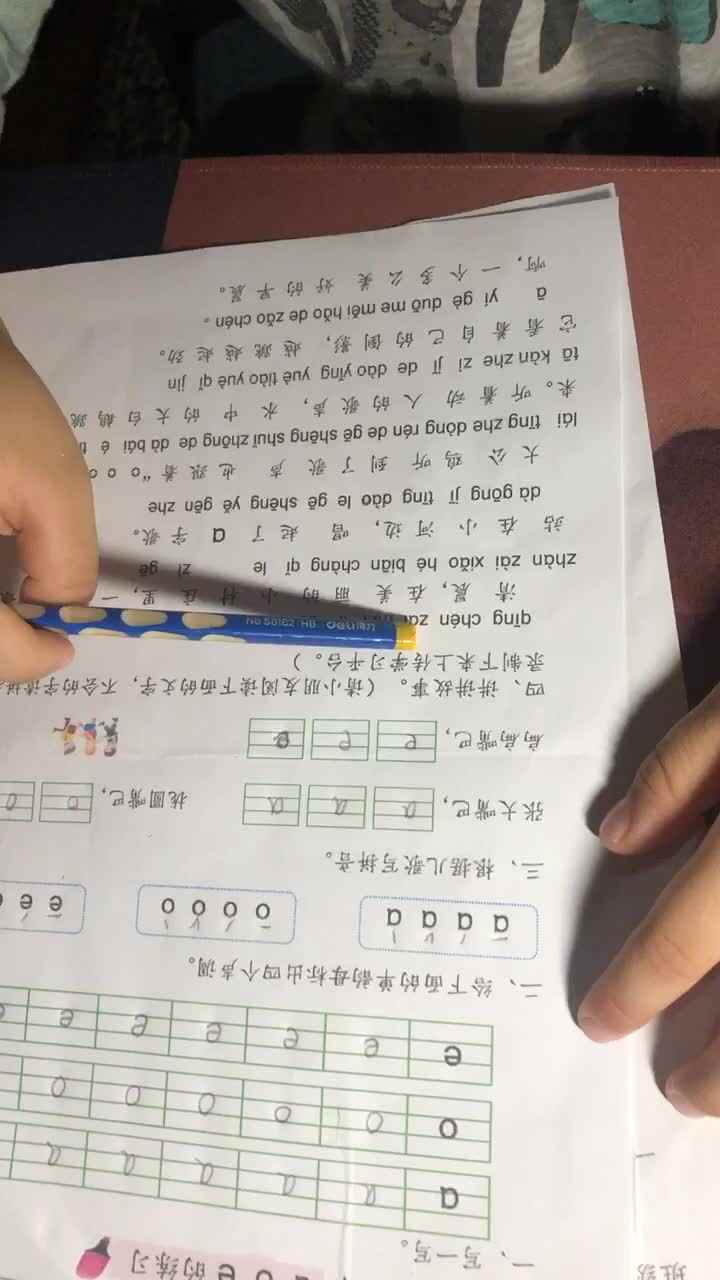 班级
o e 的练习
一、写一写。
a a a a a a
o o o o o o
e e e e e e e
二、给下面的单韵母标出四个声调。
ā á ǎ à ō ó ǒ ò ē é
三、根据儿歌写拼音。
张大嘴巴， a a a 拢圆嘴巴， o o
扁扁嘴巴， e e e
四、讲讲故事。（请小朋友阅读下面的文字，不会的字读拼
录制下来上传学习平台。）
qīng chén zài
清 晨，在 美 丽 的 小 村 庄 里，一
zhàn zài xiǎo hé biān chàng qǐ le zì gē
站 在 小 河 边，唱 起 了 a 字 歌。
dà gōng jī tīng dào le gē shēng yě gēn zhe
大 公 鸡 听 到 了 歌 声 也 跟 着 “o o o
lái tīng zhe dòng rén de gē shēng shuǐ zhōng de dà bái é
来。听 着 动 人 的 歌 声，水 中 的 大 白 鹅 跳
tā kàn zhe zì jǐ de dào yǐng yuè tiào yuè qǐ jìn
它 看 着 自 己 的 倒 影，越 跳 越 起 劲。
ā yí gè duō me měi hǎo de zǎo chén 。
啊，一 个 多 么 美 好 的 早 晨。
No.50162 HB